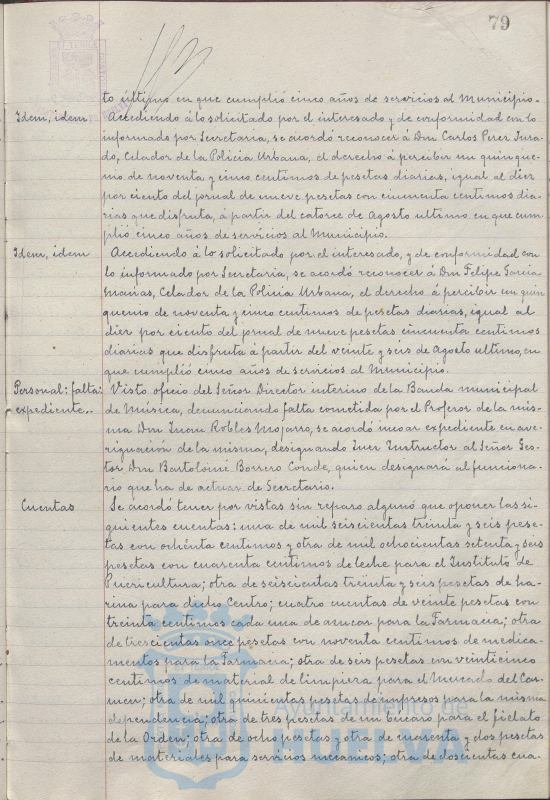 79
to último en que cumplió cinco años de servicios al Municipio.
Idem, idem, Accediendo á lo solicitado por el interesado y de conformidad con lo
informado por Secretaría, se acordó reconocer á Don Carlos Perez Jura-
do, Celador de la Policia Urbana, el derecho á percibir un quinque-
nio de noventa y cinco centimos de pesetas diarias, igual al diez
por ciento del jornal de nueve pesetas con cincuenta centimos dia-
rias que disfruta, á partir del catorce de Agosto ultimo en que cum-
plió cinco años de servicios al Municipio.
Idem, idem Accediendo á lo solicitado por el interesado, y de conformidad con
lo informado por Secretaria, se acordó reconocer á Don Felipe Garcia
Macias, Celador de la Policia Urbana, el derecho á percibir un quin
quenio de noventa y cinco centimos de pesetas diarias, igual al
diez por ciento del jornal de nueve pesetas cincuenta centimos
diarias que disfruta á partir del veinte y seis de Agosto ultimo, en
que cumplió cinco años de servicios al Municipio.
Personal: falta: Visto oficio del Señor Director interino de la Banda municipal
expediente.. de Música, denunciando falta cometida por el Profesor de la mis-
ma Don Juan Robles Mojarro, se acordó incoar expediente en ave-
riguación de la misma, designando Juez Instructor al Señor Ges-
tor Don Bartolomé Borrero Conde, quien designará al funciona-
rio que ha de actuar de Secretario.
Cuentas Se acordó tener por vistas sin reparo alguno que oponer las si-
guientes cuentas: una de mil seiscientas treinta y seis pese-
tas con ochenta centimos y otra de mil ochocientas setenta y seis
pesetas con cuarenta centimos de leche para el Instituto de
Puericultura; otra de seiscientas treinta y seis pesetas de ha-
rina para dicho Centro; cuatro cuentas de veinte pesetas con
treinta centimos cada una de azucar para la Farmacia; otra
de trescientas once pesetas con noventa centimos de medica-
mentos para la Farmacia; otra de seis pesetas con veinticinco
centimos de material de limpieza para el Mercado del Car-
men; otra de mil quinientas pesetas de impresos para la misma
dependencia; otra de tres pesetas de un bucaro para el fielato
de la Orden; otra de ocho pesetas y otra de cuarenta y dos pesetas
de materiales para servicios mecanicos; otra de doscientas cua-
Ayuntamiento de
HUELVA